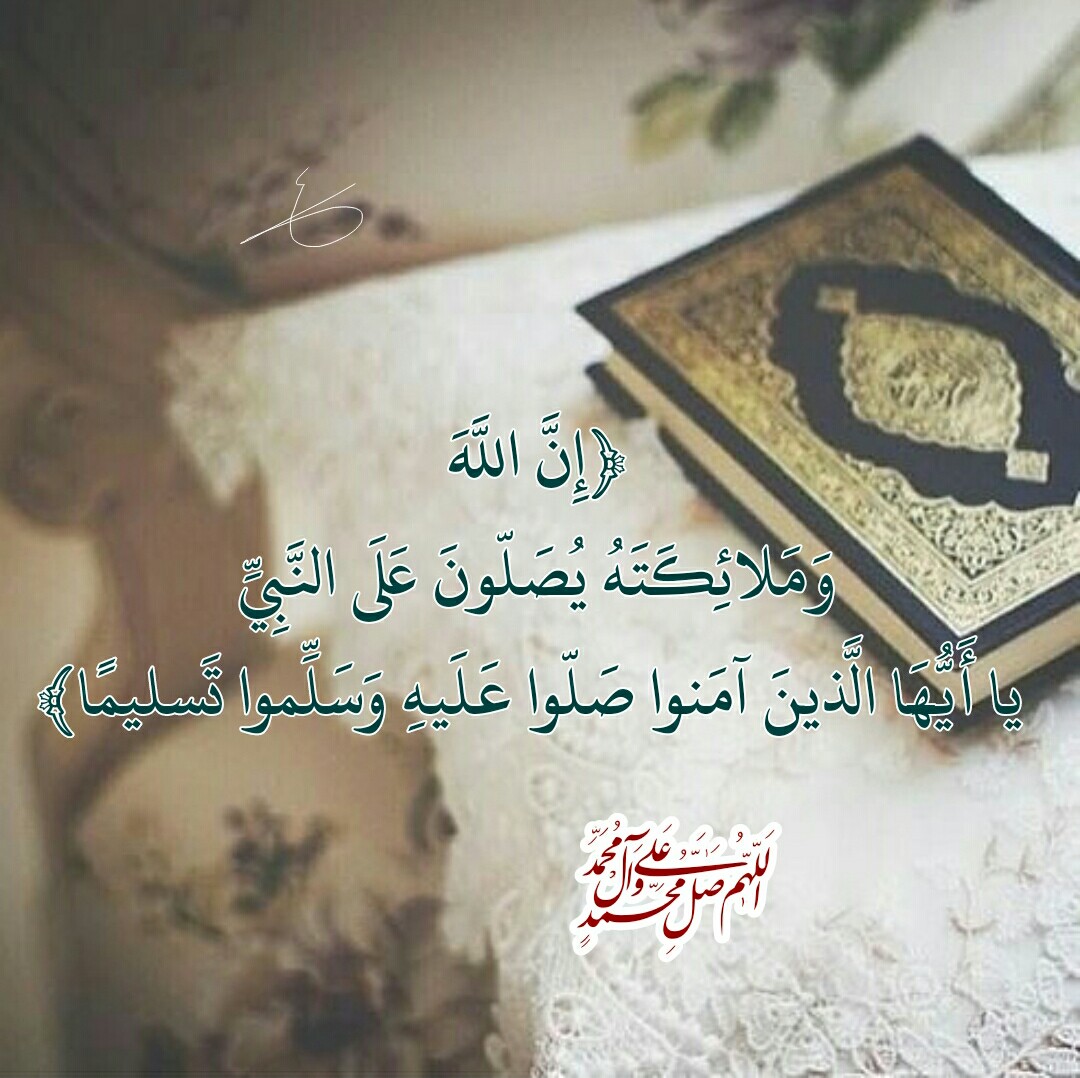 ﴿إِنَّ اللَّهَ
وَمَلائِكَتَهُ يُصَلّونَ عَلَى النَّبِيِّ
يا أَيُّهَا الَّذينَ آمَنوا صَلّوا عَلَيهِ وَسَلِّموا تَسليمًا﴾
اَللّٰهُمَّ صَلِّ عَلَى مُحَمَّدٍ وَآلِ مُحَمَّدٍ